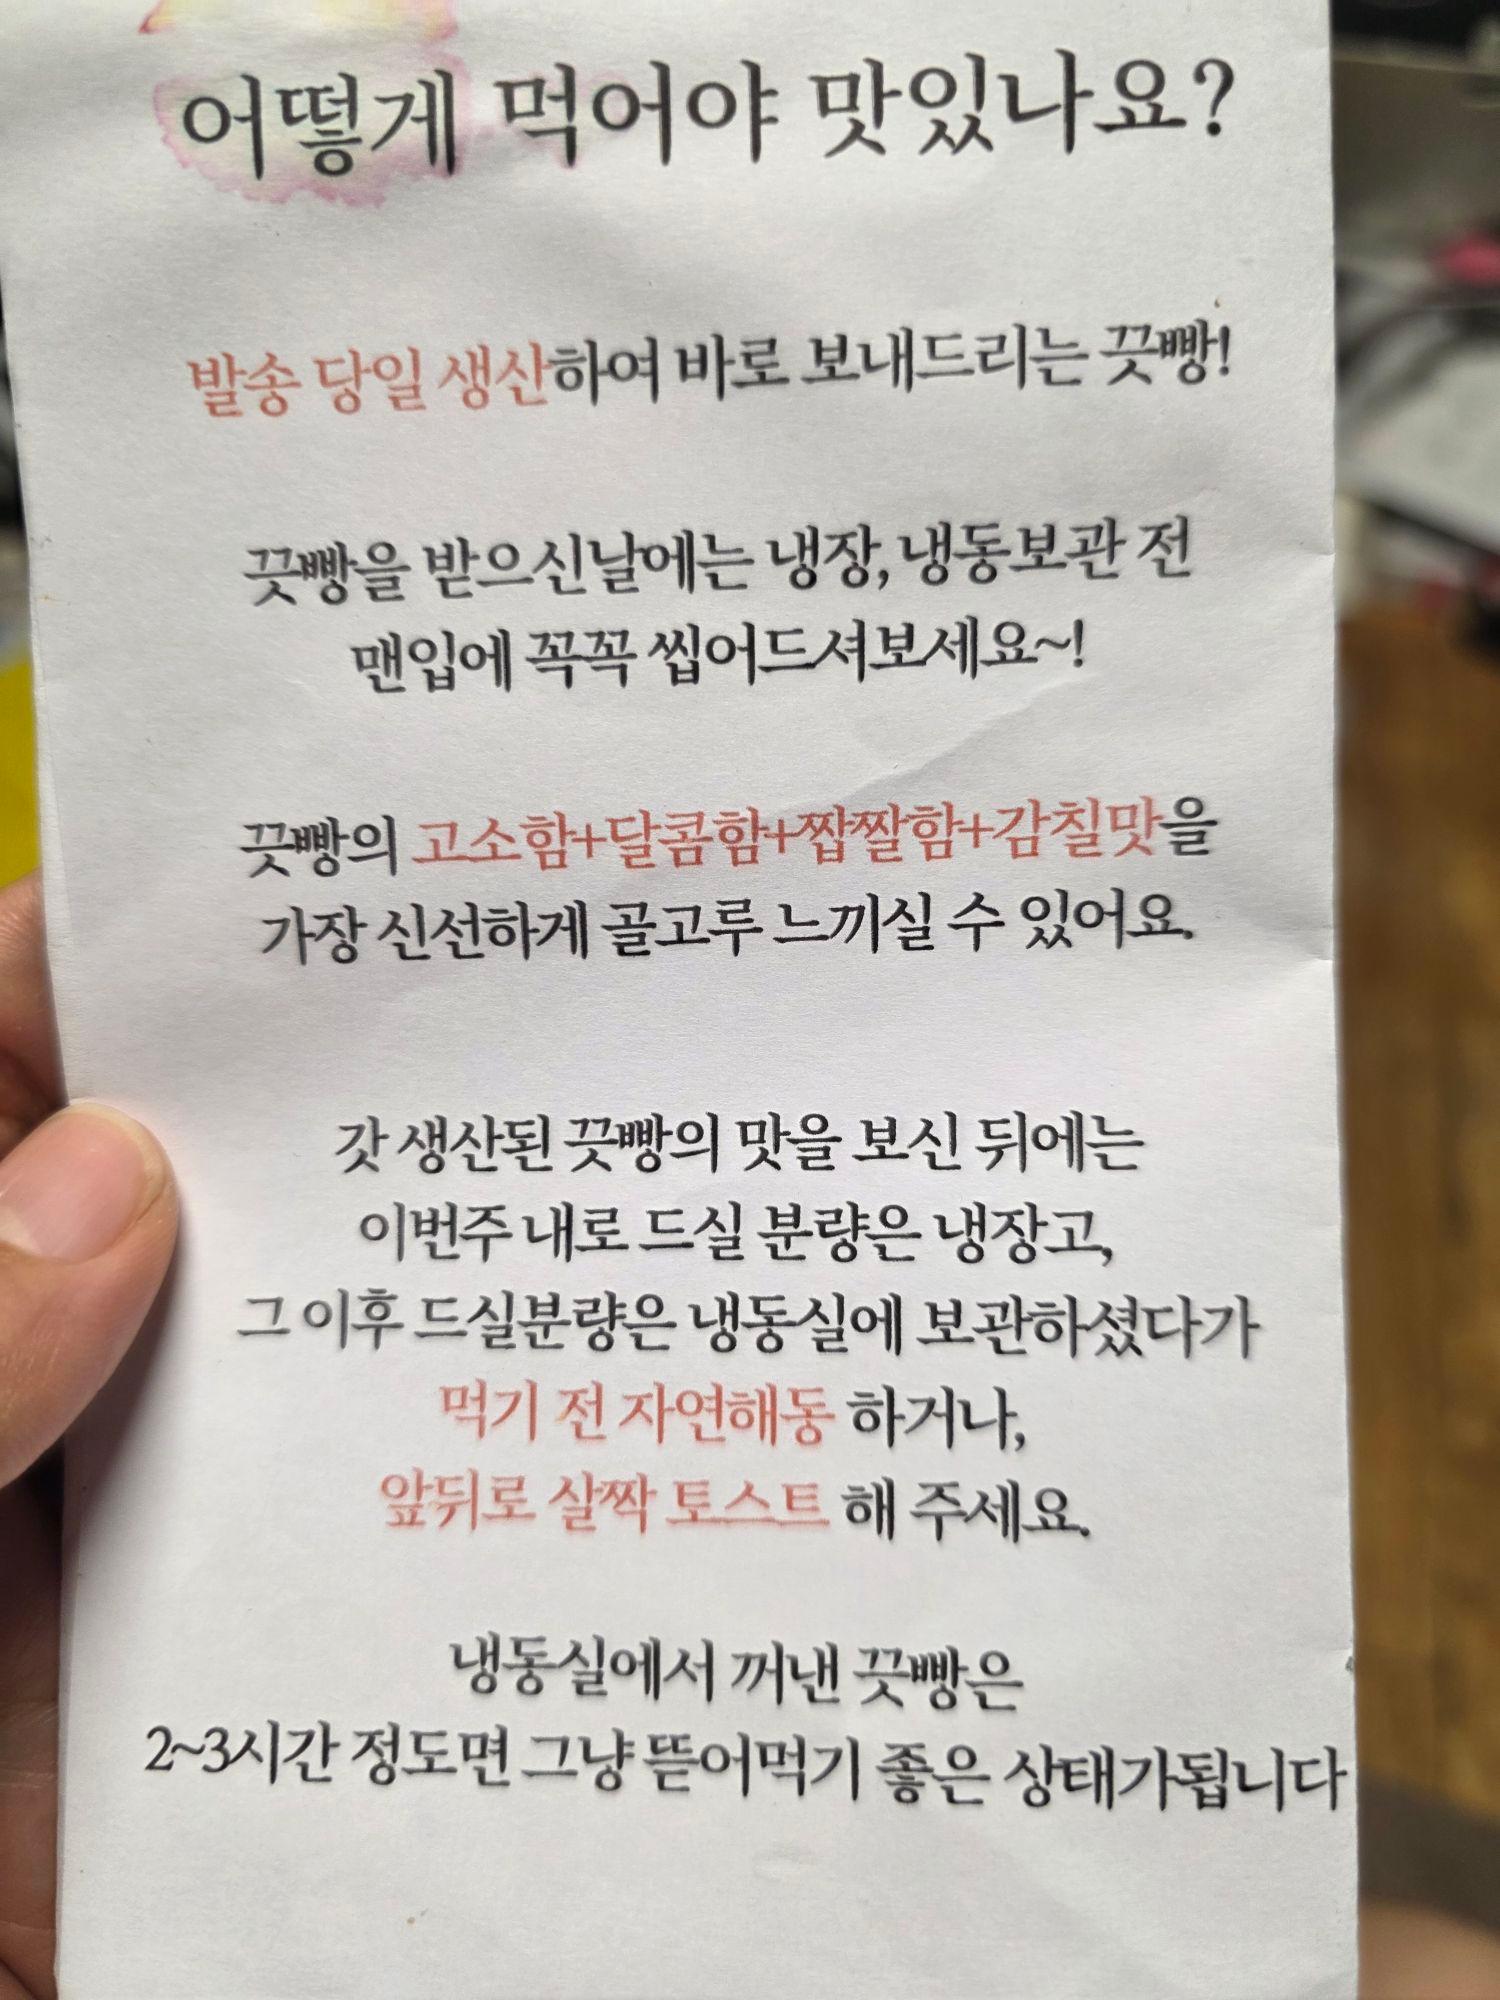 어떻게 먹어야 맛있나요?
발송 당일 생산하여 바로 보내드리는 끗빵!
끗빵을 받으신날에는 냉장, 냉동보관 전
맨입에 꼭꼭 씹어드셔보세요~!
끗빵의 고소함+달콤함+짭짤함+감칠맛을
가장 신선하게 골고루 느끼실 수 있어요.
갓 생산된 끗빵의 맛을 보신 뒤에는
이번주 내로 드실 분량은 냉장고,
그 이후 드실분량은 냉동실에 보관하셨다가
먹기 전 자연해동 하거나,
앞뒤로 살짝 토스트 해 주세요.
냉동실에서 꺼낸 끗빵은
2~3시간 정도면 그냥 뜯어먹기 좋은 상태가됩니다